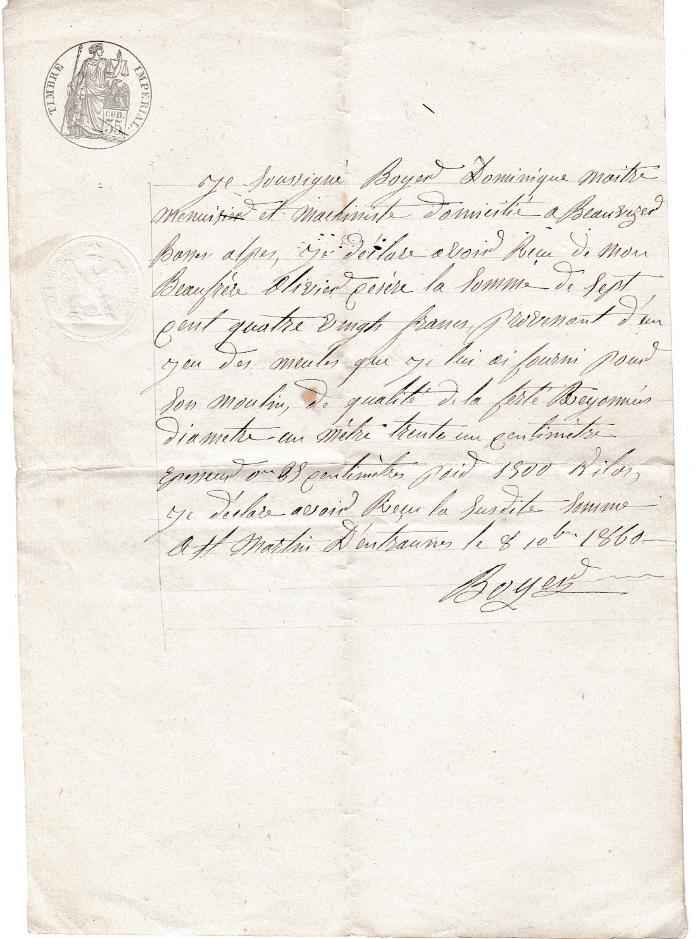 TIMBRE IMPERIAL.
cen.
55
Je soussigné Boyer Dominique maitre
menuisier et machiniste domicilié a Beauvezer
basses alpes, je déclare avoir Reçu de mon
Beaufrére Olivier césére la somme de Sept
cent quatre vingts francs, provenant d'un
jeu des meules que je lui ai fourni pour
son moulin, de qualité de la ferte
diametre un métre trente un centimétre
epesseur 0m centimétres poid 1500 Kilos,
je déclare avoir Reçu la susdite somme
a St Martin D'entraunes le 8 10bre 1860
Boyer